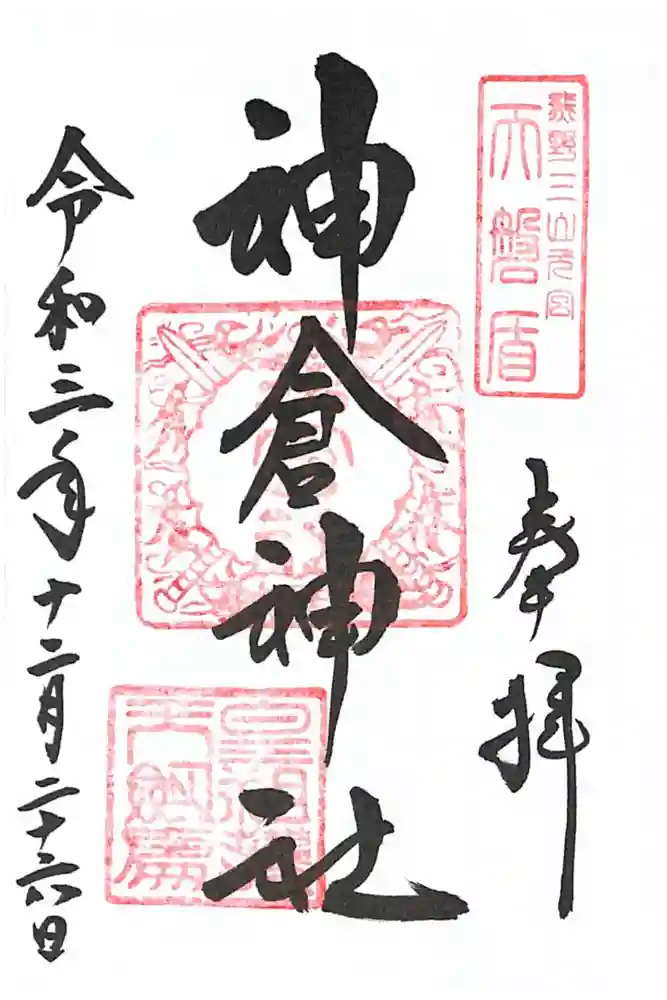 熊野三山元宮
天磐盾
奉拝
神倉神社
令和三年十二月二十六日